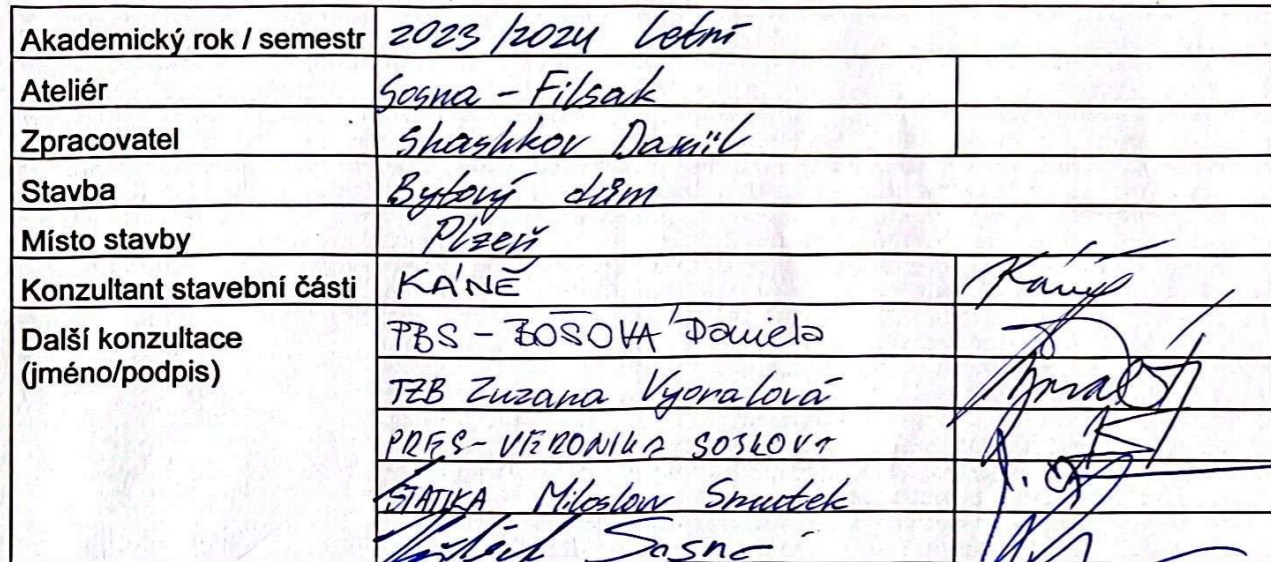 Akademický rok / semestr 2023/2024 Letní
Ateliér Sosna - Filsak
Zpracovatel Shashkov Daniil
Stavba Bytový dům
Místo stavby Plzeň
Konzultant stavební části KÁNĚ Káně
Další konzultace PBS - BOŠOVÁ Daniela
(jméno/podpis)
TZB Zuzana Vyoralová
PRES - VERONIKA SOJKOVÁ
STATIKA Miloslav Smutek
Sosna